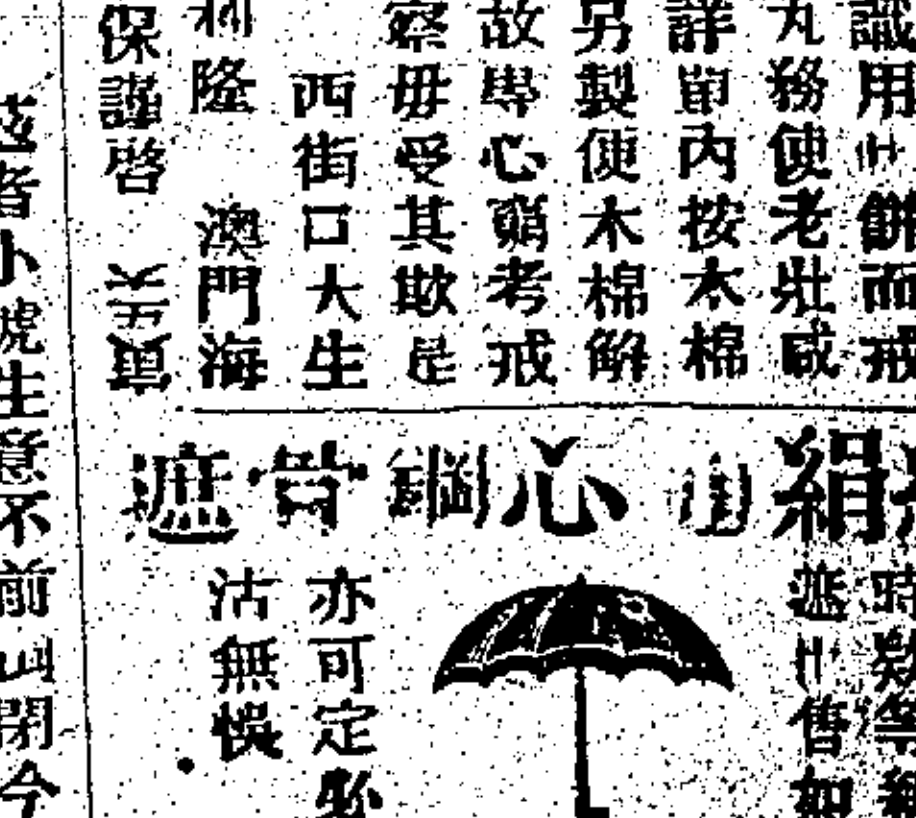 識用出餅而戒
丸務使老壯咸
詳單內按太棉
另製使木棉解
故專心窮考戒
察毋受其欺是
西街口大生
利隆 澳門海
保謹啓
絹 心鋼骨遮
時款等
遮出售如
亦可定
沽無悞
小號生意不前 閉今